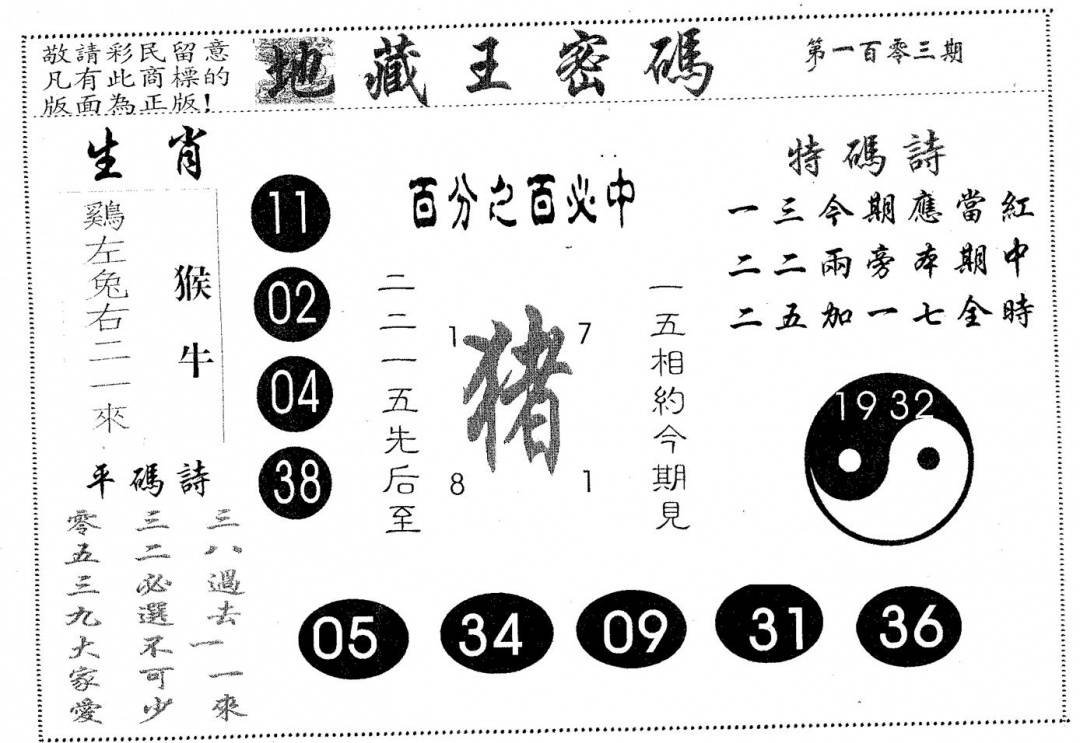 敬請彩民留意
凡有此商標的
版面為正版!
地藏王密碼
第一百零三期
生肖
鷄左兔右二一來
猴牛
11
02
04
38
百分之百必中
二二一五先后至
1
7
猪
8
1
一五相約今期見
特碼詩
一三今期應當紅
二二兩旁本期中
二五加一七全時
19 32
平碼詩
零五三九大家愛
三二必選不可少
三八過去一一來
05
34
09
31
36